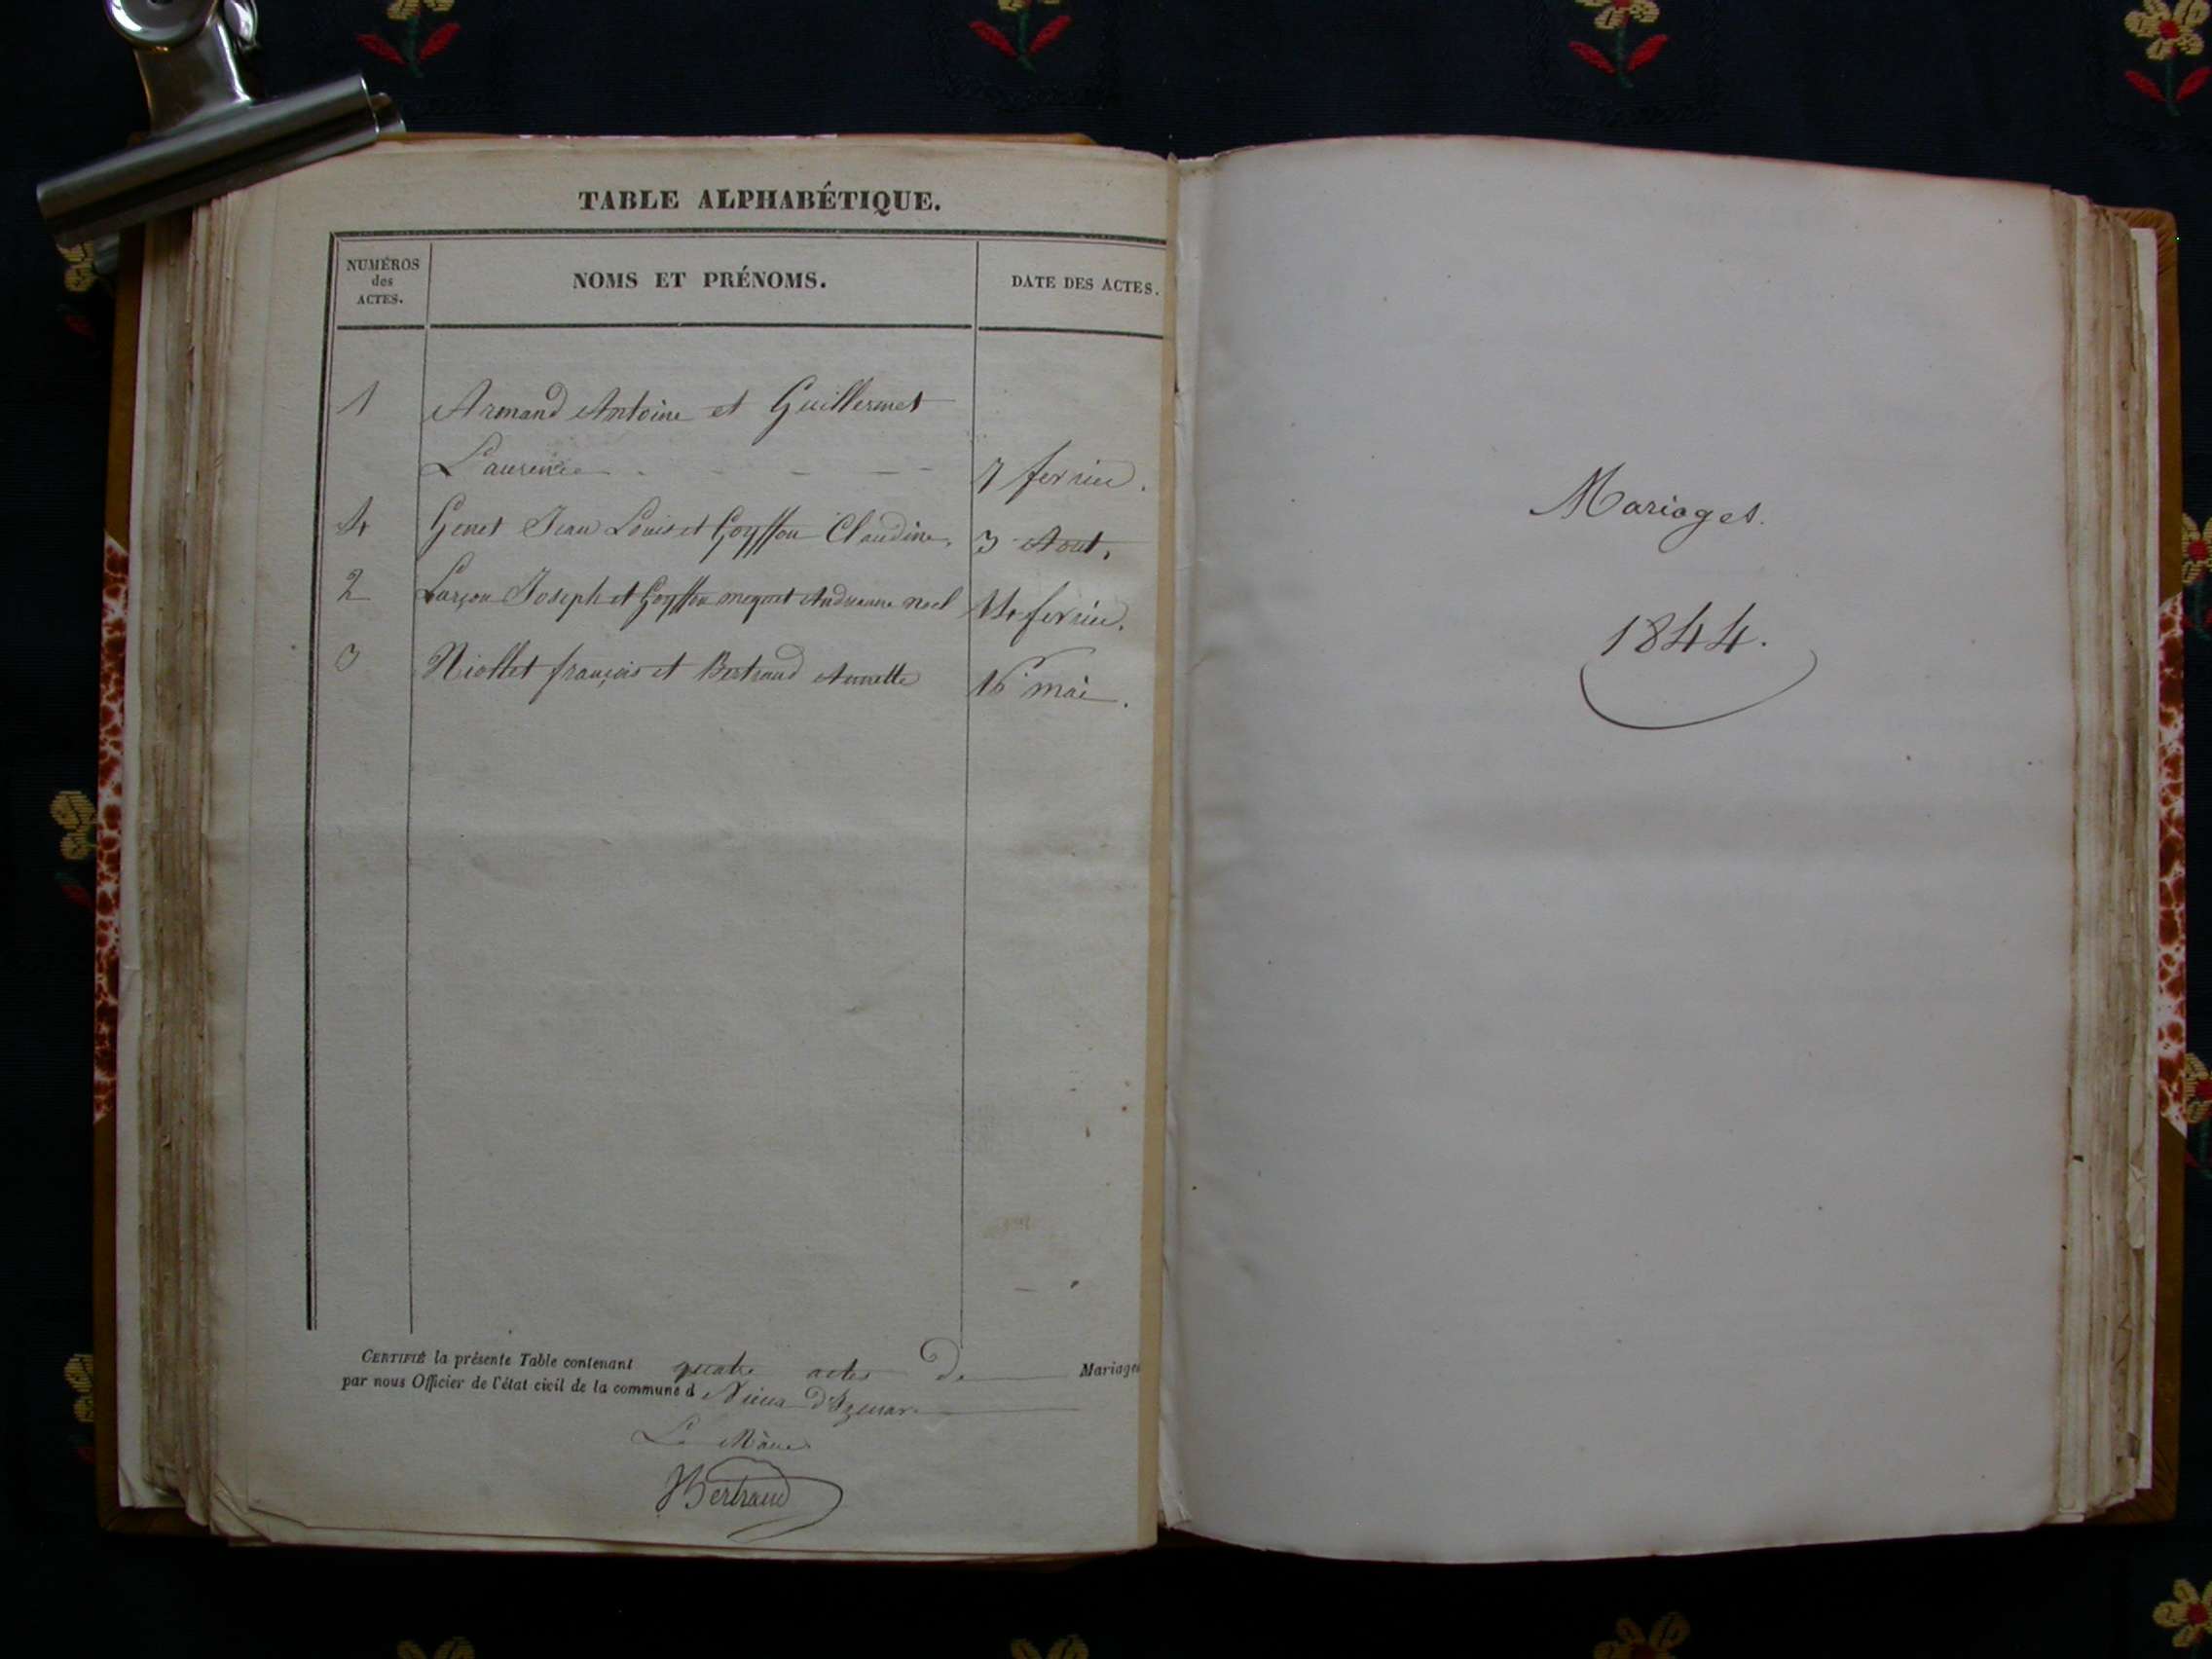 TABLE ALPHABÉTIQUE.
NUMÉROS
des
ACTES.
NOMS ET PRÉNOMS.
DATE DES ACTES.
1 Armand Antoine et Guillermet
Laurence 7 fevrier.
4 Genet Jean Louis et Goyffon Claudine. 3 Aout.
2 Larçon Joseph et Goyffon Andreanne noel 14 fevrier.
3 Niollet françois et Bertrand Annette 16 mai.
CERTIFIÉ la présente Table contenant quatre actes De Mariages
par nous Officier de l'état civil de la commune d Vieux D'Izenave
Le Maire
Bertrand
Mariages.
1844.